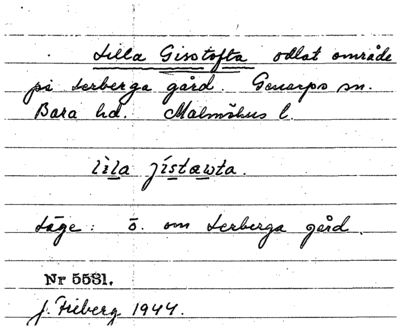 Lilla Gisstofta odlat område
på Lerberga gård. Genarps sn.
Bara hd. Malmöhus l.
lila jistawta.
Läge: ö. om Lerberga gård.
Nr 5581.
J. Friberg 1944.